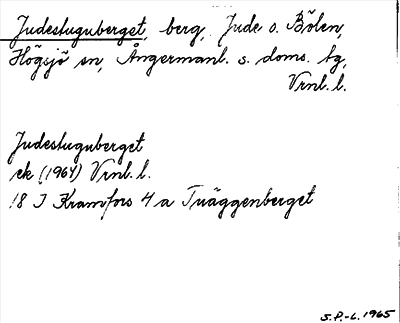 Judestuguberget, berg, Jude o. Bölen,
Högsjö sn, Ångermanl. s. doms. tg,
Vrnl. l.
Judestuguberget
ek (1964) Vrnl. l.
18 I Kramfors 4 a Tväggenberget
S.P.-L. 1965